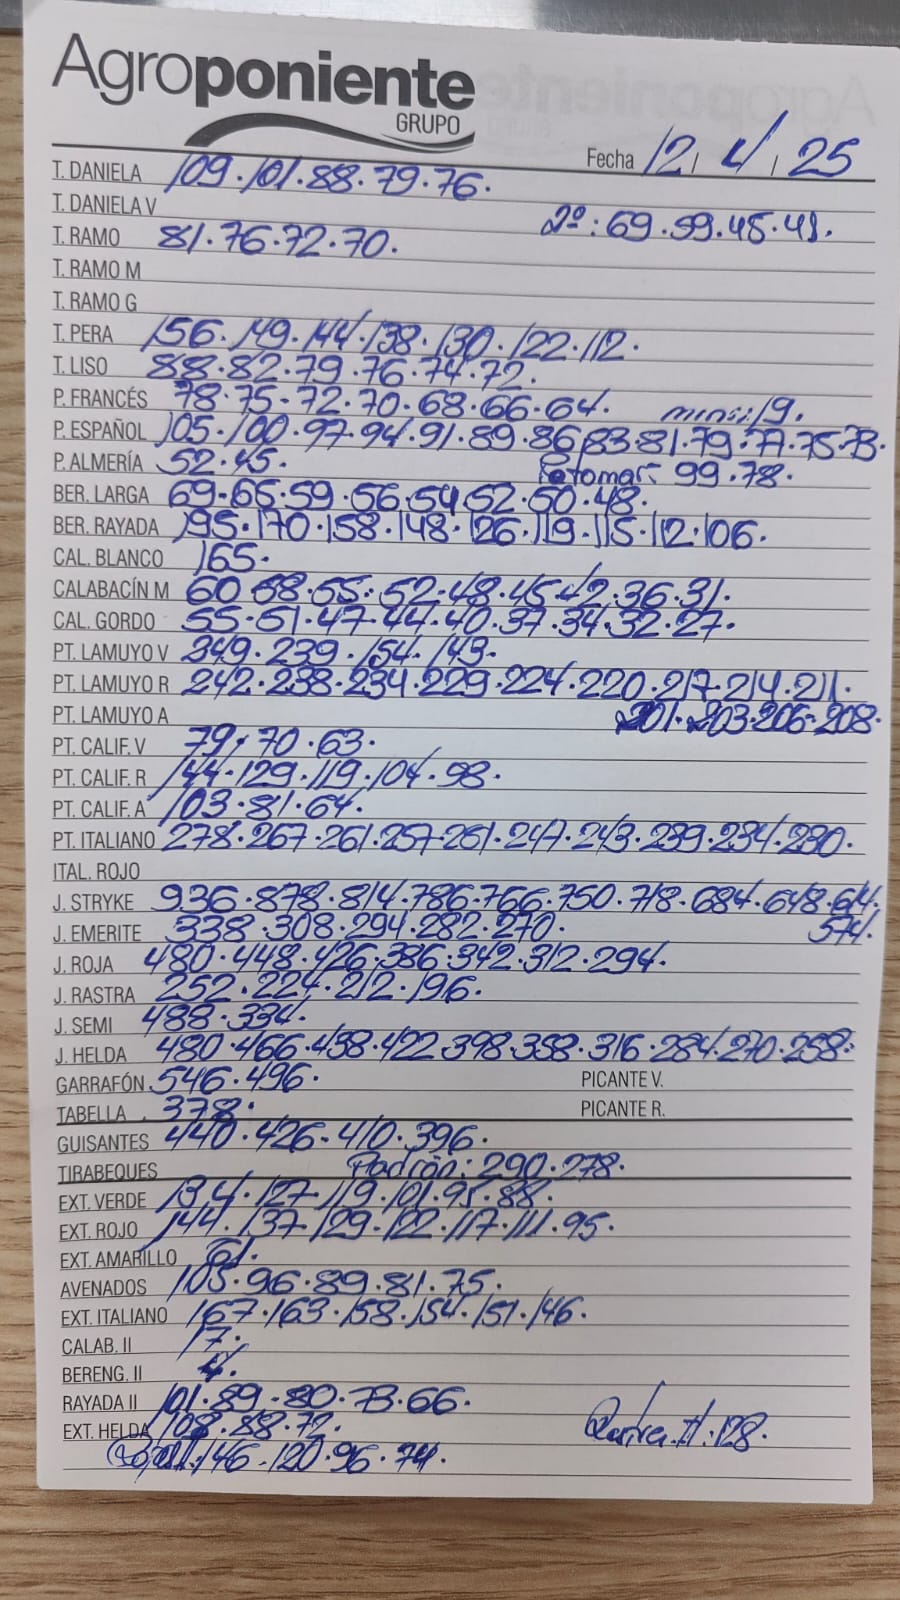 Agroponiente
GRUPO
Fecha 12 / 4 / 25
T. DANIELA 109.101.88.79.76.
T. DANELA V
2º: 69.59.48.41.
T. RAMO 81.76.72.70.
T. RAMO M
T. RAMO G
T. PERA 156.149.144.138.130.122.112.
T. LISO 88.82.79.76.74.72.
P. FRANCÉS 78.75.72.70.68.66.64. mini: 19.
P. ESPAÑOL 105.100.97.94.91.89.86.83.81.79.77.75.73.
P. ALMERÍA 52.45. 99.78.
BER. LARGA 69.65.59.56.54.52.50.48.
BER. RAYADA 195.170.158.148.126.119.115.112.106.
CAL. BLANCO 165.
CALABACÍN M 60.58.55.52.48.45.42.36.31.
CAL. GORDO 55.51.47.44.40.37.34.32.27.
PT. LAMUYO V 249.239.154.143.
PT. LAMUYO R 242.238.234.229.224.220.217.214.211.
PT. LAMUYO A 201.203.206.208.
PT. CALIF. V 79.70.63.
PT. CALIF. R 144.129.119.104.98.
PT. CALIF. A 103.81.64.
PT. ITALIANO 278.267.261.257.251.247.243.239.234.230.
ITAL. ROJO
J. STRYKE 936.878.814.786.766.750.718.684.648.614.
J. EMERITE 338.308.294.282.270. 574.
J. ROJA 480.448.426.386.342.312.294.
J. RASTRA 252.224.212.196.
J. SEMI 488.334.
J. HELDA 480.466.438.422.398.358.316.284.270.258.
GARRAFÓN 546.496. PICANTE V.
TABELLA 378. PICANTE R.
GUISANTES 440.426.410.396.
TIRABEQUES Padrón: 290.278.
EXT. VERDE 134.127.119.101.95.88.
EXT. ROJO 144.137.129.122.117.111.95.
EXT. AMARILLO 61.
AVENADOS 105.96.89.81.75.
EXT. ITALIANO 167.163.158.154.151.146.
CALAB. II 17.
BERENG. II 4.
RAYADA II 101.89.80.73.66.
EXT. HELDA 108.88.72. II: 128.
146.120.96.74.